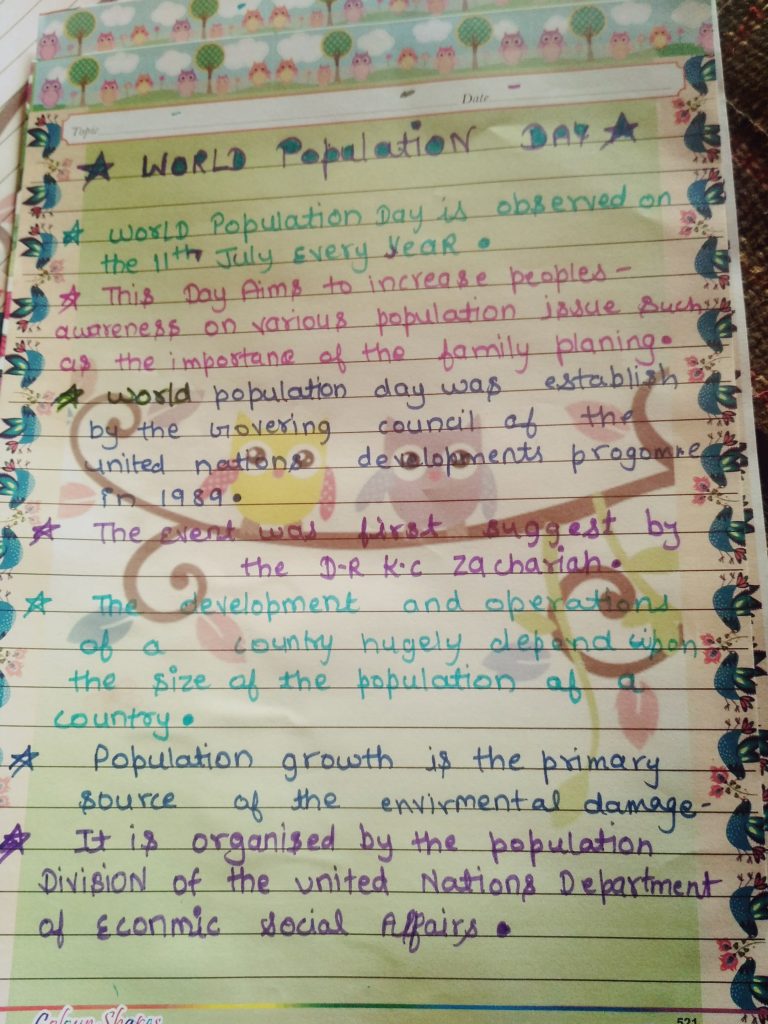 Date
Topic
★ WORLD Population DAY ★
★ WORLD Population Day is observed on
the 11th July Every Year.
★ This Day Aims to increase peoples-
awareness on various population issue such
as the importane of the family planing.
★ World population day was establish
by the Grovering council of the
united nations developments progomne
in 1989.
★ The event was first suggest by
the D-R K.C Zachariah.
★ The development and operations
of a country hugely depend upon
the size of the population of a
country.
★ Population growth is the primary
source of the envirmental damage-
★ It is organised by the population
Division of the united Nations Department
of Econmic social Affairs.
Colour Shades
521